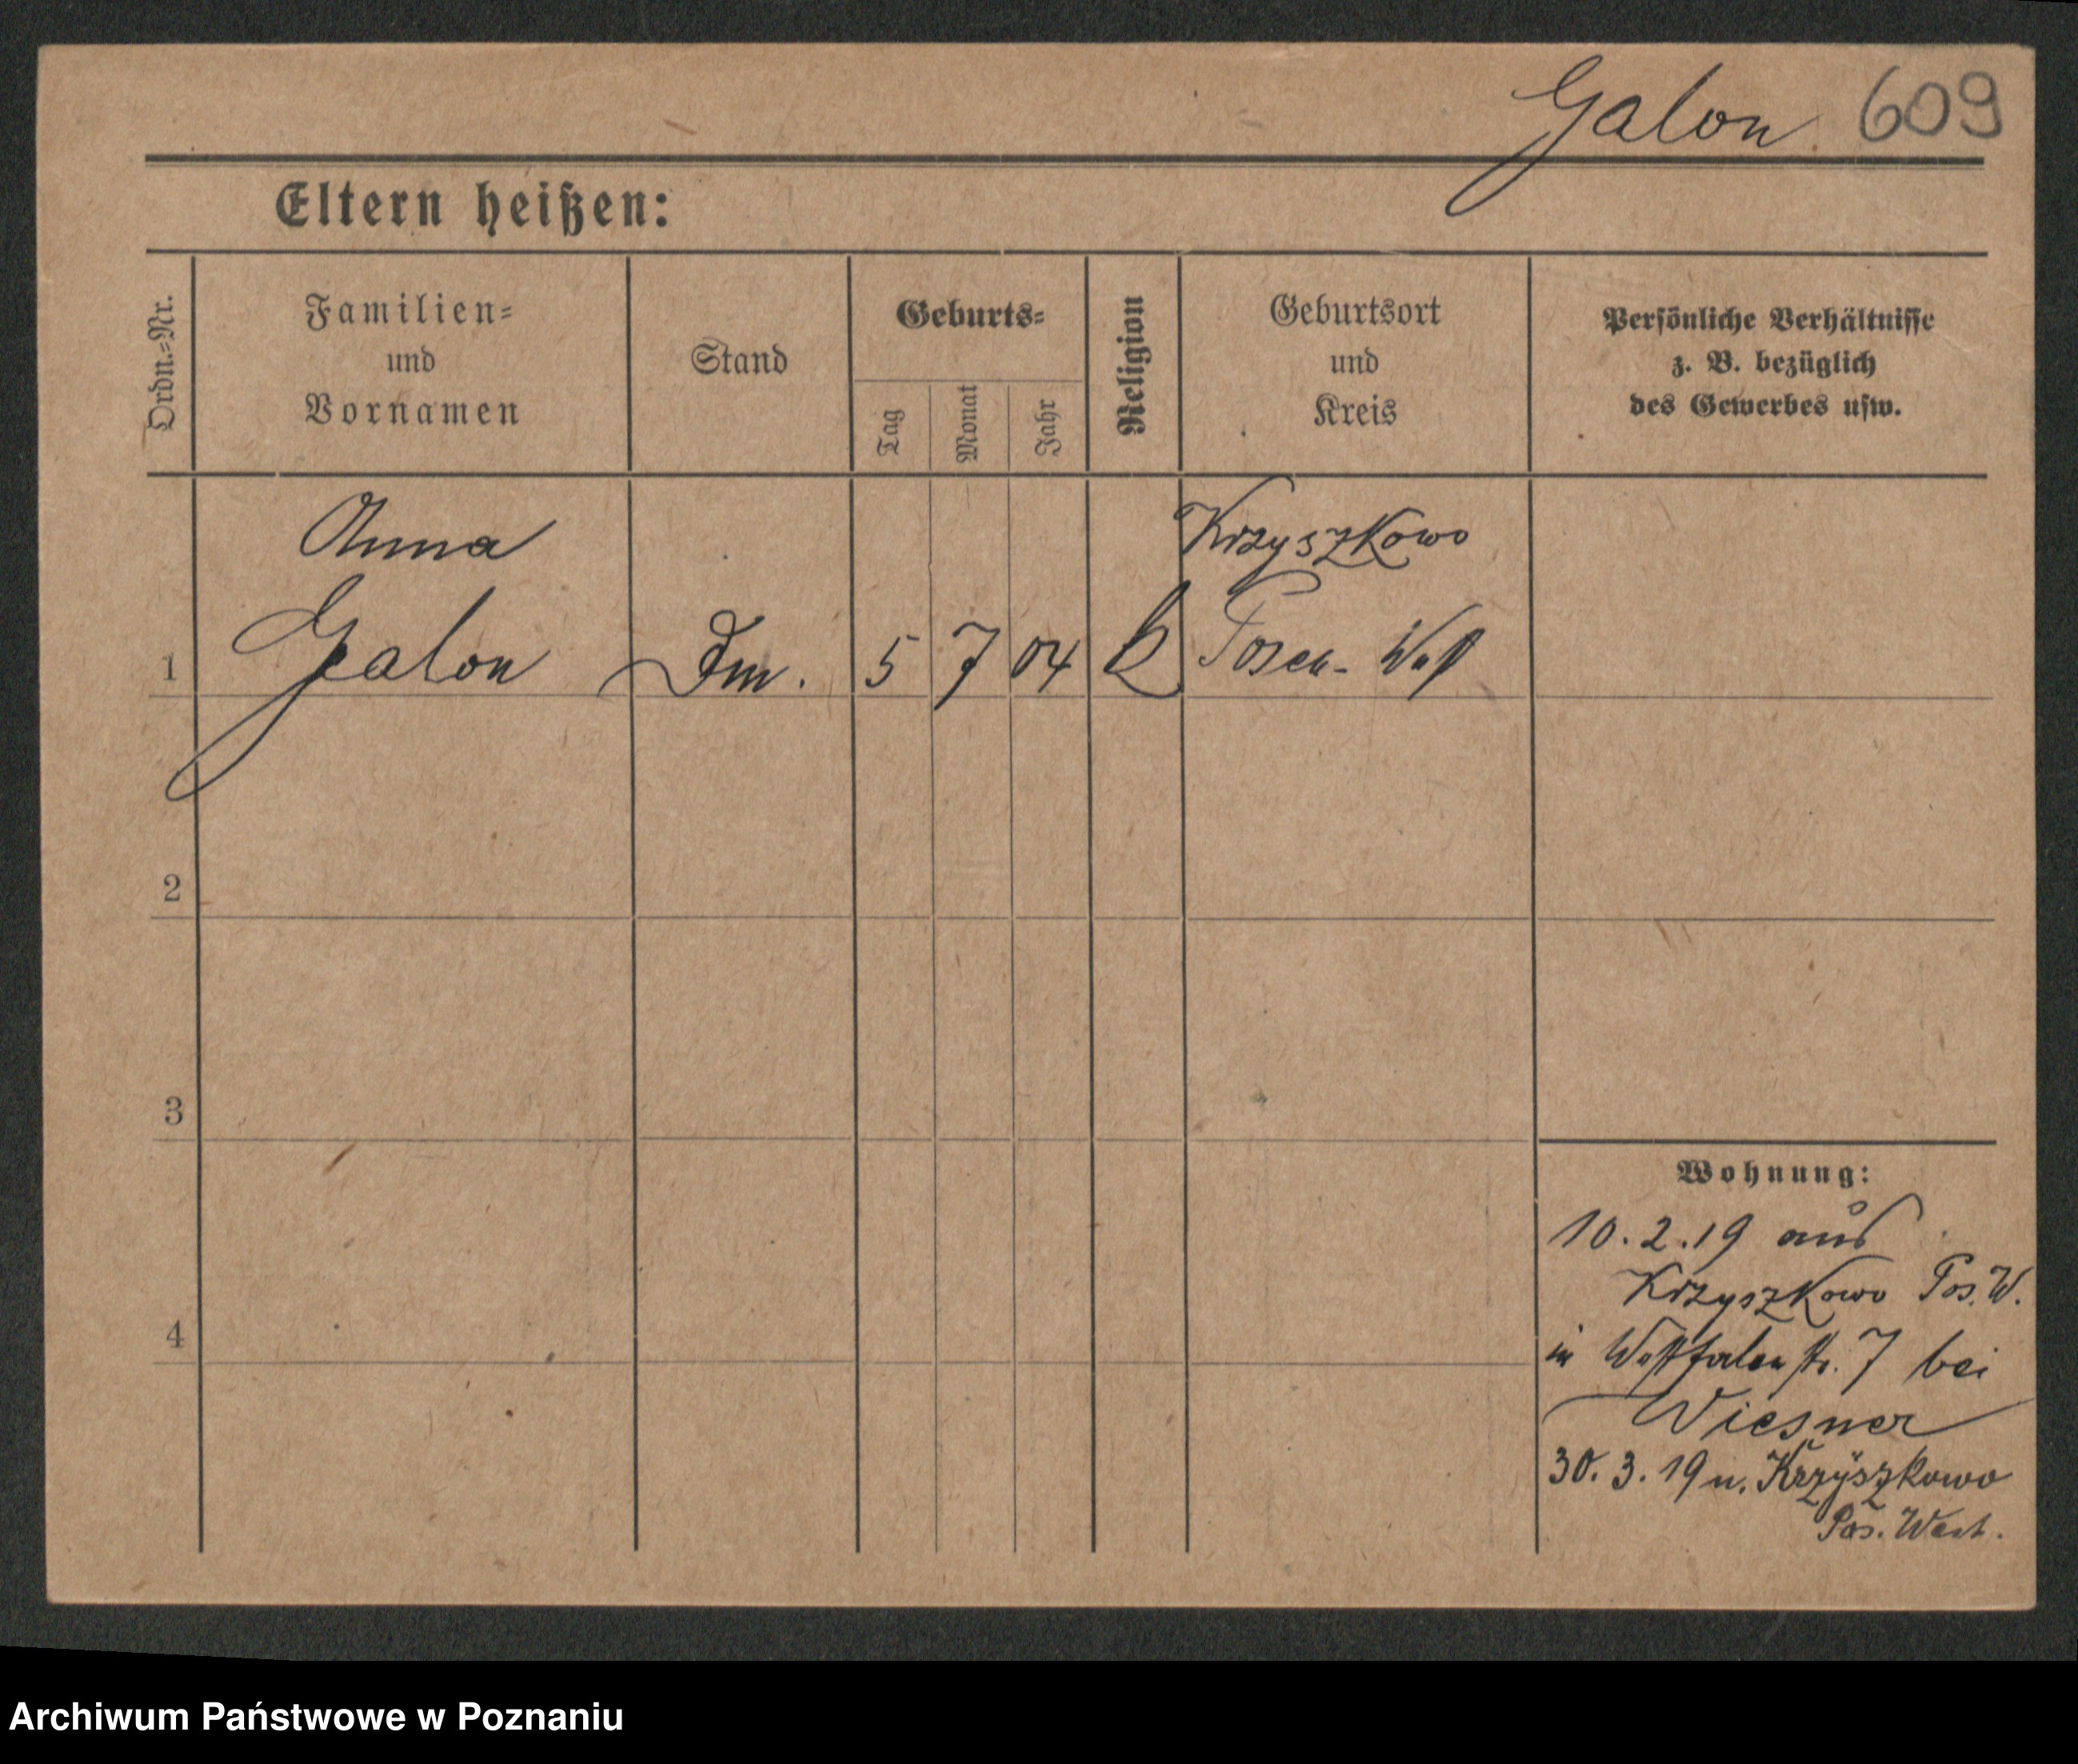 Galon 609
Eltern heißen:
Ordn.-Nr.
Familien-
und
Vornamen
Stand
Geburts-
Tag
Monat
Jahr
Religion
Geburtsort
und
Kreis
Persönliche Verhältnisse
z. B. bezüglich
des Gewerbes usw.
Anna
Krzyszkowo
1 Galon 5 7 04 Posen-West
2
3
4
Wohnung:
10.2.19 aus
Krzyszkowo Pos. W.
in Westfalenstr. 7 bei
Wiesner
30.3.19 n. Krzyszkowo
Pos. West.
Archiwum Państwowe w Poznaniu